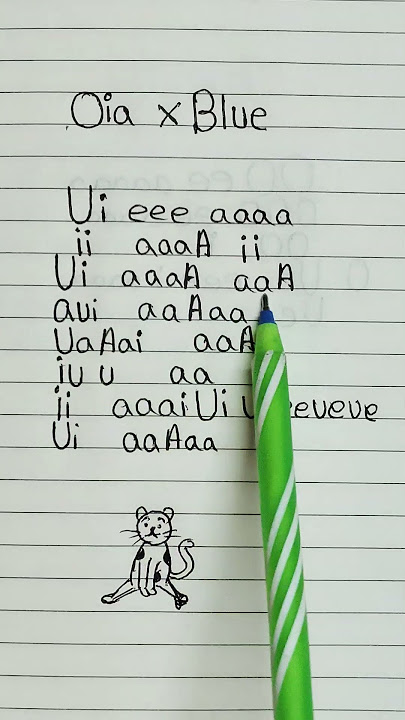 Oia x Blue
Ui eee aaaa
ii aaaA ii
Ui aaaA aaA
aui aaAaa
UaAai aaA
iu u aa
ii aaaiUi eueue
Ui aaAaa